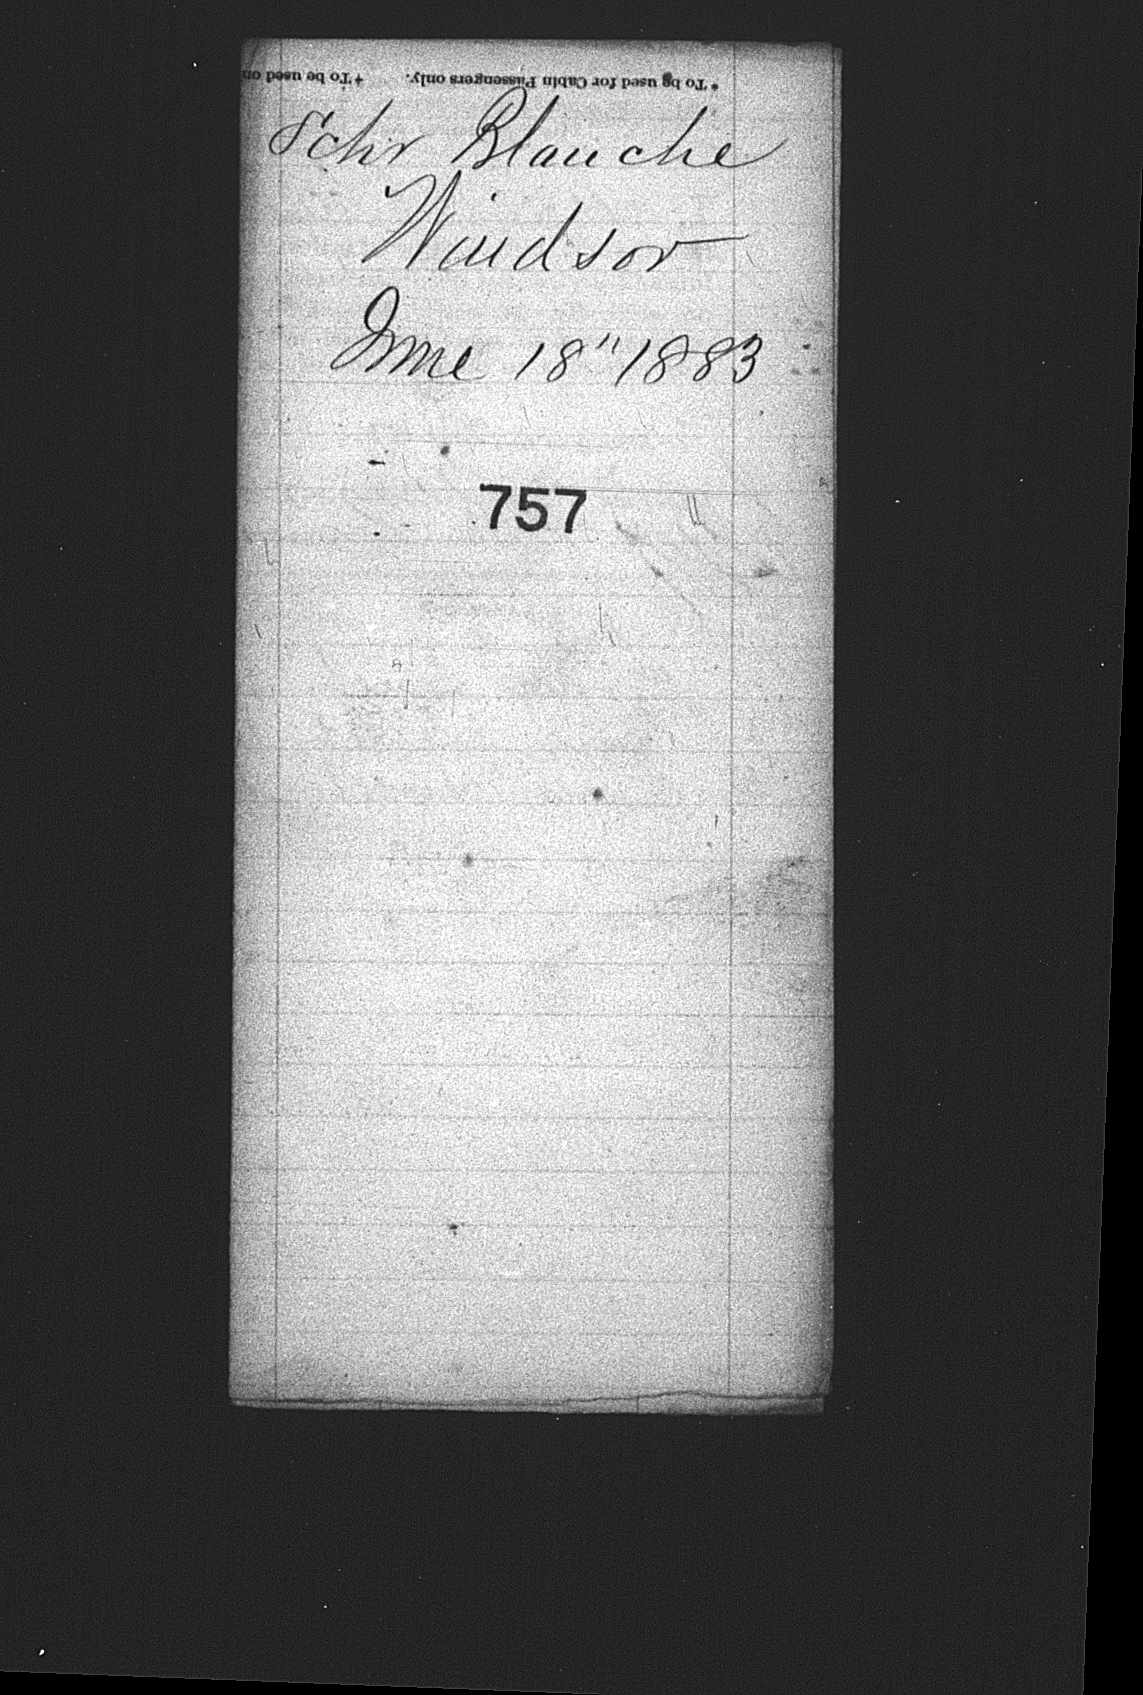 * To be used for Cabin Passengers only. † To be used on
Schr Blanche
Windsor
June 18" 1883
757